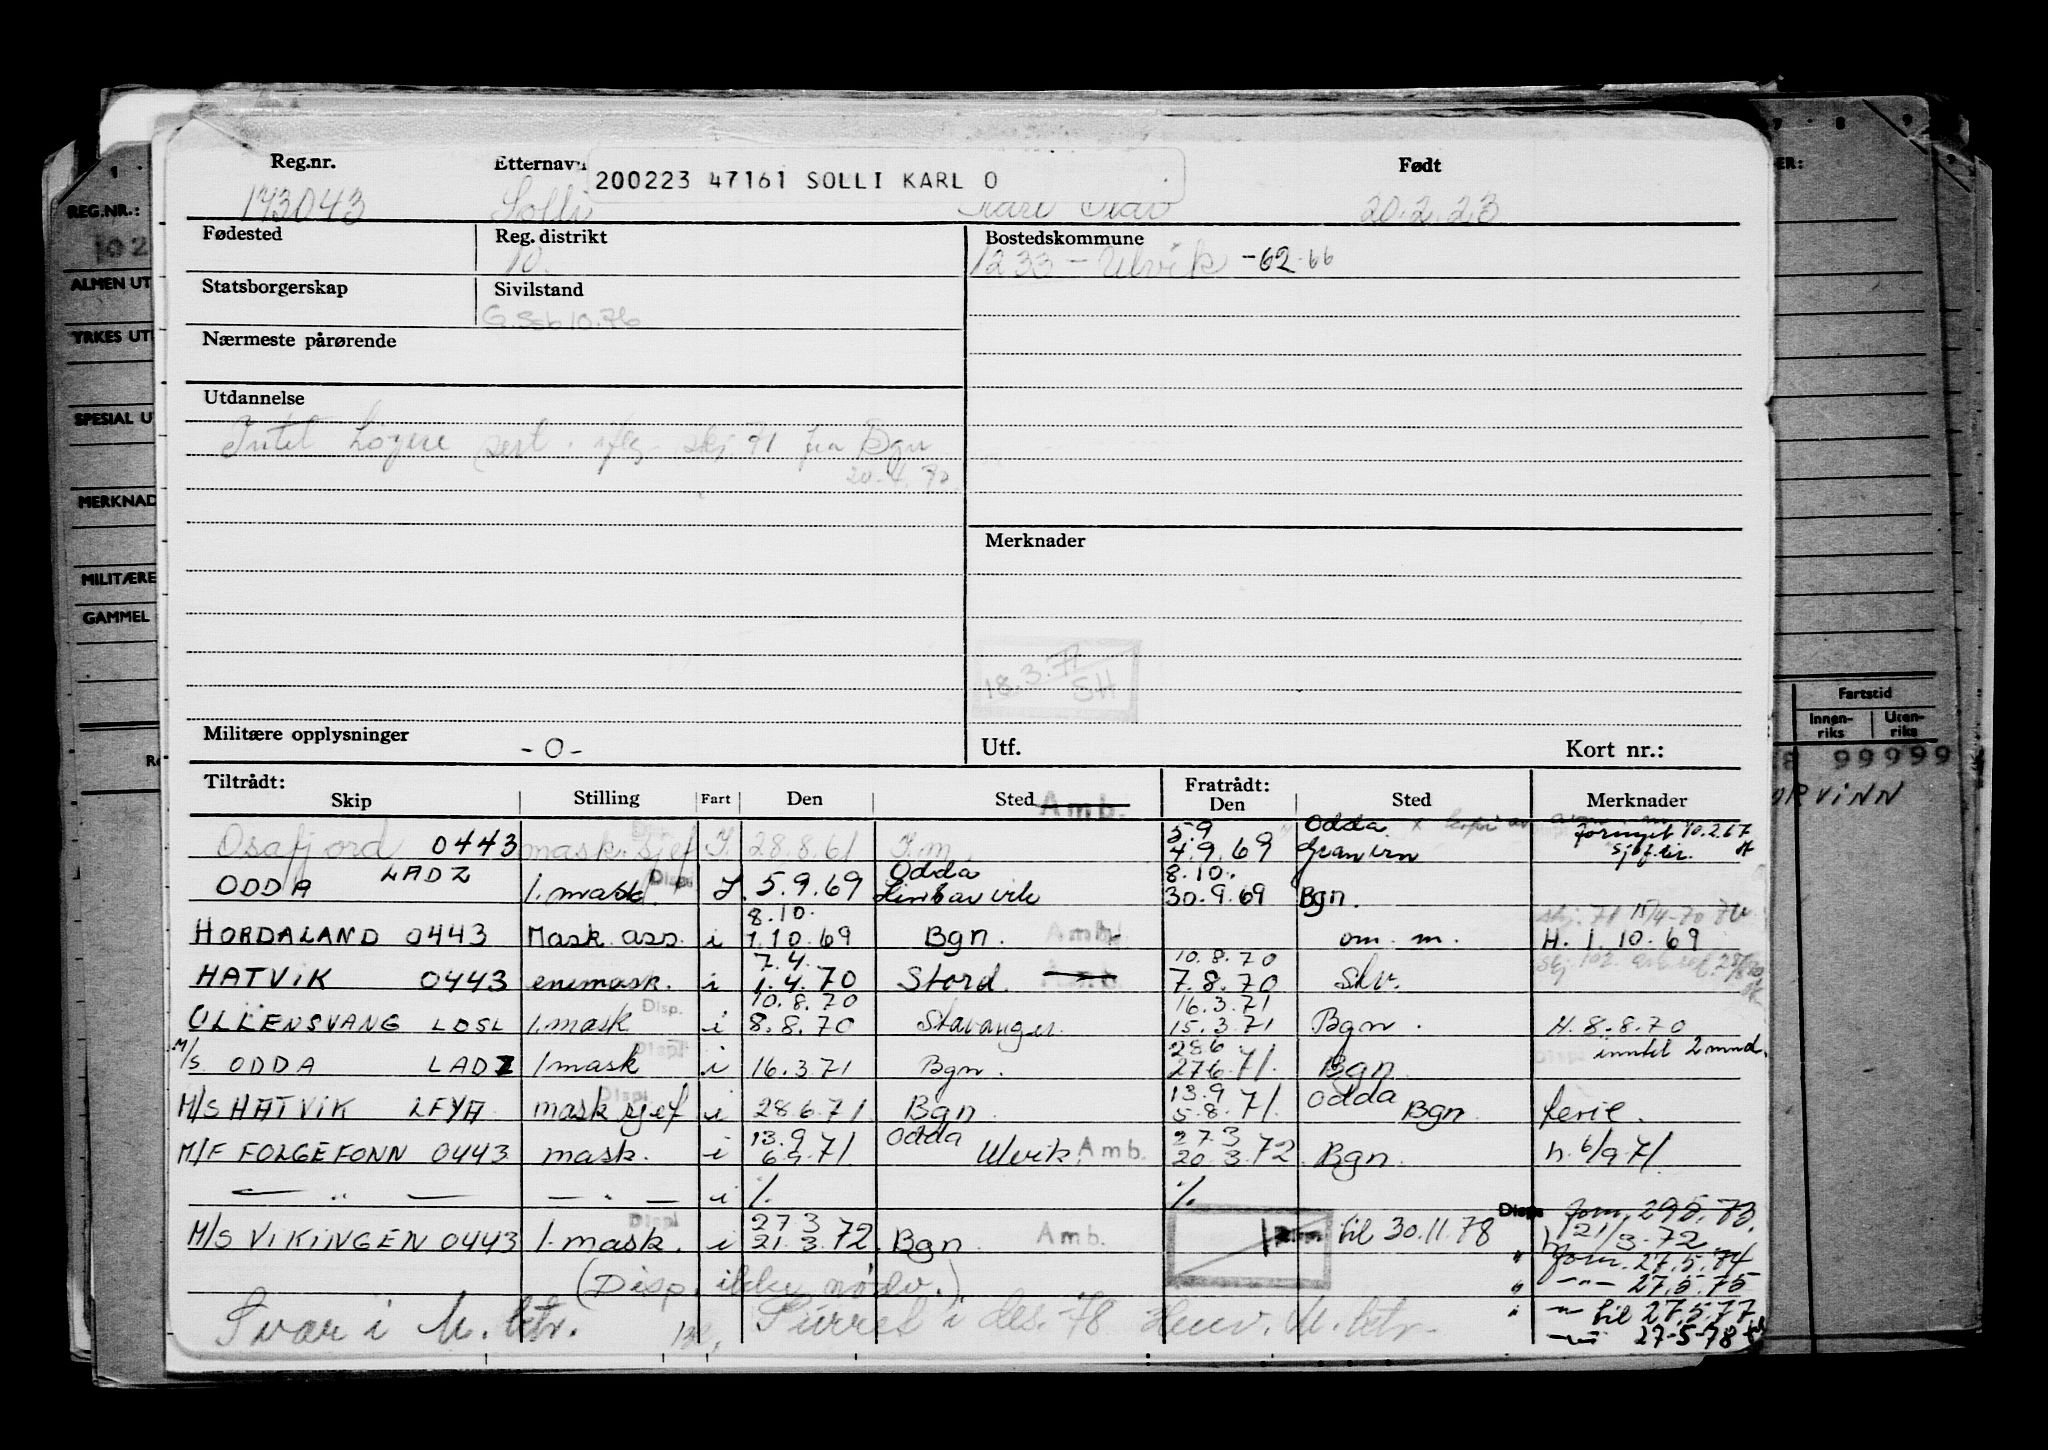 Reg.nr. Etternavn Født
200223 47161 SOLLI KARL O
143043 Solli Karl Olav 20.2.23
Fødested Reg. distrikt Bostedskommune
10. 1233 - Ulvik -62-66
Statsborgerskap Sivilstand
G. Seb 10.76
Nærmeste pårørende
Utdannelse
Intet høyere sert. iflg. skj. 71 fra Bgn
20.4.70
Merknader
18.3.71
SH
Militære opplysninger -0- Utf. Kort nr.:
Tiltrådt: Fratrådt:
Skip Stilling Fart Den Sted Amb. Den Sted Merknader
Osafjord 0443 mask.sjef I. 28.8.61 F.m. 5.9 4.9.69 Odda Granvin fornyet 10.2.67
ODDA LADZ 1. mask. Disp I. 5.9.69 Odda 8.10. 30.9.69 Bgn.
HORDALAND 0443 Mask. ass. i 8.10. 1.10.69 Bgn. Amb. om. m. H. 1.10.69
HATVIK 0443 enemask. i 7.4. 1.4.70 Stord. Amb. 10.8.70 7.8.70 Slv.
ULLENSVANG LDSL 1. mask Disp. i 10.8.70 8.8.70 Stavanger. 16.3.71 15.3.71 Bgn. H. 8.8.70
M/S ODDA LADZ 1 mask Displ i 16.3.71 Bgn. 28.6 27.6.71. Bgn. inntil 2 mnd.
M/S HATVIK LFYA mask sjef Displ i 28.6.71 Bgn. 13.9 5.8.71. Odda Bgn. ferie.
M/F FOLGEFONN 0443 mask. i 13.9 6.9.71. Odda Ulvik. Amb. 27.3 20.3.72 Bgn. h. 6/9 71.
— " — — " — i % %
M/S VIKINGEN 0443 1. mask. Displ i 27.3 21.3.72 Bgn. Amb. til 30.11.78 Disp. forn. 29.5.73.
h 21/3-72
(Disp. ikke nødv.) " forn. 27.5.74
" -"- 27.5.75
Svar i M. btr. Purret i des. -78 Henv. M. btr. " -"- til 27.5.77
-"- 27-5-78
REG.NR.:
102
ALMEN UT
YRKES UT
SPESIAL U
MERKNAD
MILITÆRE
GAMMEL
Fartstid
Innen-riks Uten-riks
99999